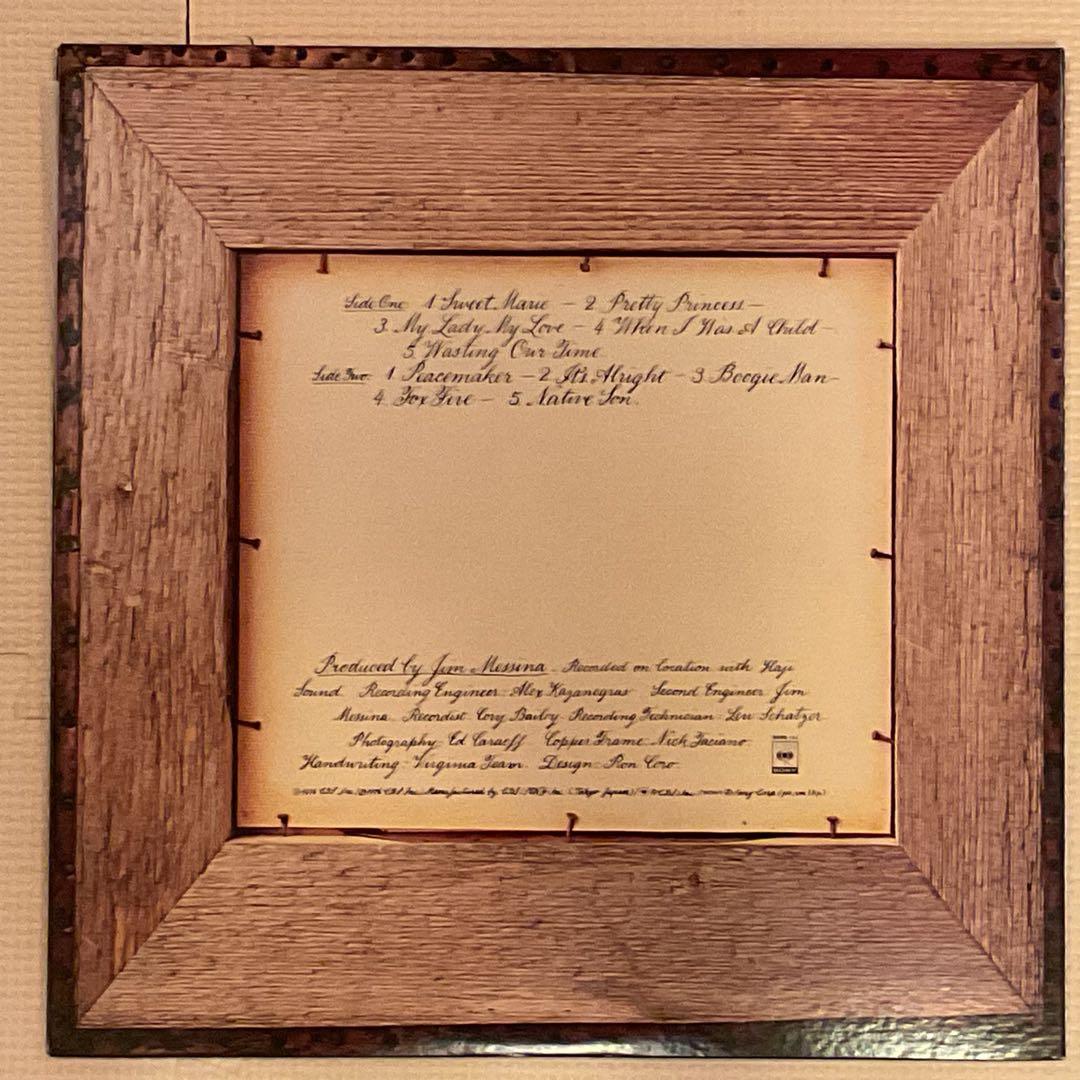 Side One 1 Sweet Marie – 2 Pretty Princess –
3. My Lady, My Love – 4 When I Was A Child –
5. Wasting Our Time
Side Two: 1 Peacemaker – 2 It's Alright – 3 Boogie Man –
4. Fox Fire – 5. Native Son.
Produced by Jim Messina – Recorded on location with Haji
Sound Recording Engineer: Alex Kazanegras Second Engineer Jim
Messina Recordist Cory Bailey Recording Technician: Len Schatzer
Photography: Ed Caraeff Copper Frame: Nick Faciano
Handwriting: Virginia Team Design: Ron Coro
Manufactured by CBS/SONY Inc. (Tokyo Japan)
SONY